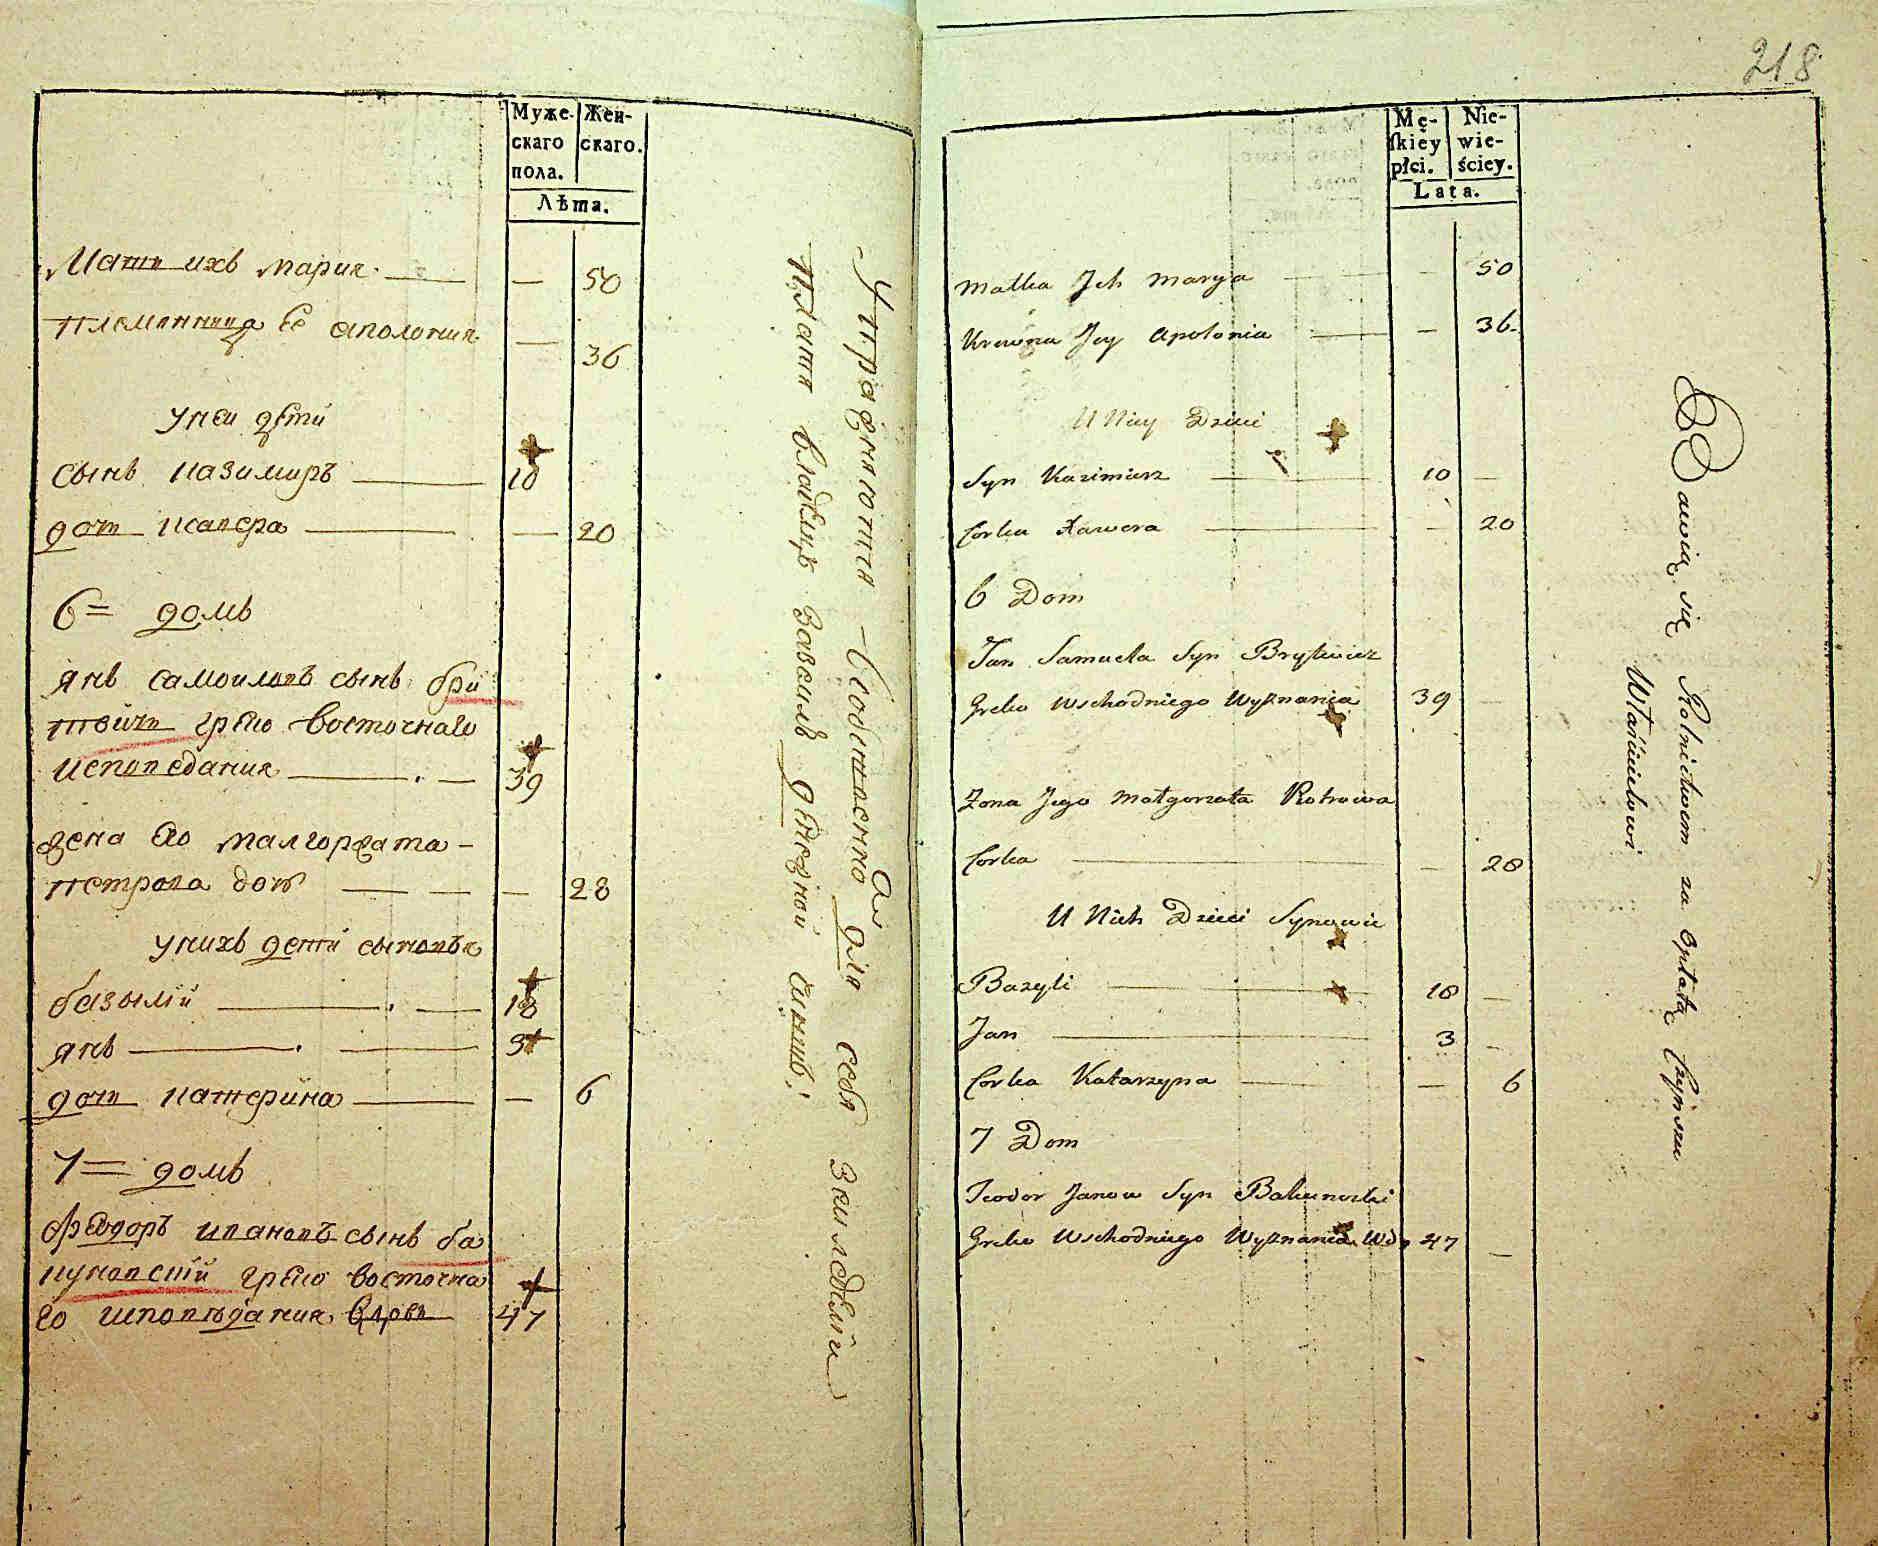 218
Муже-
скаго
пола.
Жен-
скаго.
Лѣта.
Мати ихъ Мария — 50
племянница Ее аполония — 36
унеи дѣти
сынъ казимиръ 10
дочь ксавера — 20
6= домъ
янъ самоиловъ сынъ бри
тевичъ греко восточнаго
исповедания 39
жена его малгоржата
петрова дочь — 28
унихъ дети сыновья
базылій 18
янъ 3
дочь катерина — 6
7= домъ
федоръ ивановъ сынъ ба
куновскій греко восточна
го исповѣдания вдовъ 47
Упражняются
для себя земледелием
Платя владельцу денежной чиншъ.
Mę-
ſkiey
płci.
Nie-
wie-
ściey.
Lata.
Matka Jch Marya — 50
Krewna Jey Apolonia — 36
U Niey Dzieci
Syn Kazimierz 10 —
Corka Xawera — 20
6 Dom
Jan Samuela Syn Brytewicz
Greko Wschodniego Wyznania 39 —
Zona Jego Małgorzata Piotrowa
Corka — 28
U Nich Dzieci Synowie
Bazyli 18 —
Jan 3 —
Corka Katarzyna — 6
7 Dom
Teodor Janow Syn Bakunowski
Greko Wschodniego Wyznania Wd. 47 —
Bawią się Rolnictwem za opłatą Czynszu
Właścicielowi